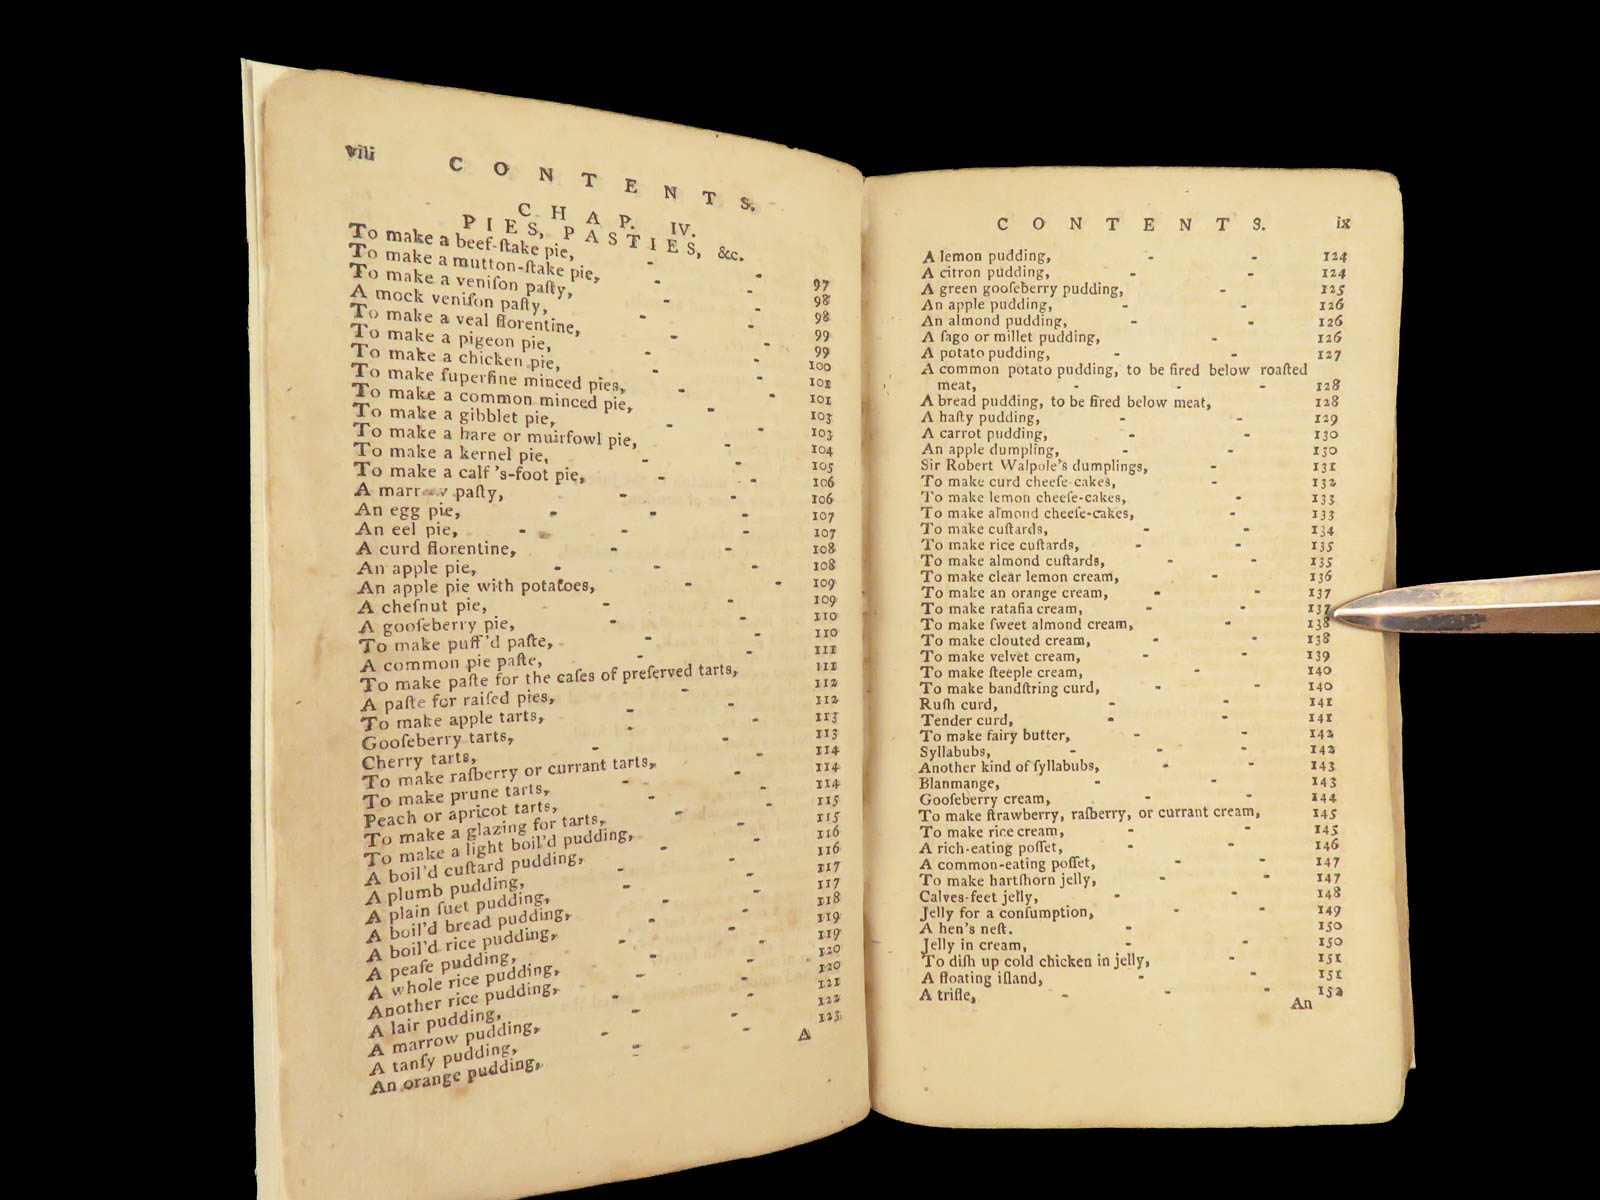 viii
CONTENTS.
CHAP. IV.
PIES, PASTIES, &c.
To make a beef-ſtake pie, - - 97
To make a mutton-ſtake pie, - - 98
To make a veniſon paſty, - - 98
A mock veniſon paſty, - - 99
To make a veal florentine, - - 99
To make a pigeon pie, - - 100
To make a chicken pie, - - 101
To make ſuperfine minced pies, - - 101
To make a common minced pie, - 103
To make a gibblet pie, - - 103
To make a hare or muirfowl pie, - 104
To make a kernel pie, - - 105
To make a calf's-foot pie, - - 106
A marrow paſty, - - 106
An egg pie, - - - 107
An eel pie, - - - 107
A curd florentine, - - 108
An apple pie, - - - 108
An apple pie with potatoes, - - 109
A cheſnut pie, - - 109
A gooſeberry pie, - - 110
To make puff'd paſte, - - 110
A common pie paſte, - - 111
To make paſte for the caſes of preſerved tarts, 111
A paſte for raiſed pies, - - 112
To make apple tarts, - - 112
Gooſeberry tarts, - - 113
Cherry tarts, - - 113
To make raſberry or currant tarts, - 114
To make prune tarts, - - 114
Peach or apricot tarts, - - 114
To make a glazing for tarts, - - 115
To make a light boil'd pudding, - 115
A boil'd cuſtard pudding, - - 116
A plumb pudding, - - 116
A plain ſuet pudding, - - 117
A boil'd bread pudding, - - 117
A boil'd rice pudding, - - 118
A peaſe pudding, - - 119
A whole rice pudding, - - 119
Another rice pudding, - - 120
A lair pudding, - - 120
A marrow pudding, - - 121
A tanſy pudding, - - 122
An orange pudding, - 123
A
CONTENTS. ix
A lemon pudding, - - 124
A citron pudding, - - 124
A green gooſeberry pudding, - 125
An apple pudding, - - 126
An almond pudding, - - 126
A ſago or millet pudding, - 126
A potato pudding, - - 127
A common potato pudding, to be fired below roaſted
meat, - - - 128
A bread pudding, to be fired below meat, 128
A haſty pudding, - - 129
A carrot pudding, - - 130
An apple dumpling, - - 130
Sir Robert Walpole's dumplings, - 131
To make curd cheeſe-cakes, - 132
To make lemon cheeſe-cakes, - 133
To make almond cheeſe-cakes, - 133
To make cuſtards, - - 134
To make rice cuſtards, - - 135
To make almond cuſtards, - - 135
To make clear lemon cream, - 136
To make an orange cream, - - 137
To make ratafia cream, - - 137
To make ſweet almond cream, - 138
To make clouted cream, - - 138
To make velvet cream, - - 139
To make ſteeple cream, - 140
To make bandſtring curd, - - 140
Ruſh curd, - - 141
Tender curd, - - 141
To make fairy butter, - - 142
Syllabubs, - - - 142
Another kind of ſyllabubs, - - 143
Blanmange, - - 143
Gooſeberry cream, - - 144
To make ſtrawberry, raſberry, or currant cream, 145
To make rice cream, - - 145
A rich-eating poſſet, - - 146
A common-eating poſſet, - - 147
To make hartſhorn jelly, - - 147
Calves-feet jelly, - - 148
Jelly for a conſumption, - - 149
A hen's neſt. - 150
Jelly in cream, - - 150
To diſh up cold chicken in jelly, - 151
A floating iſland, - - 151
A trifle, - - - 152
An